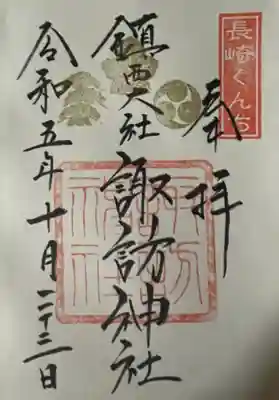 長崎くんち
奉拝
鎮西大社 諏訪神社
令和五年十月二十三日